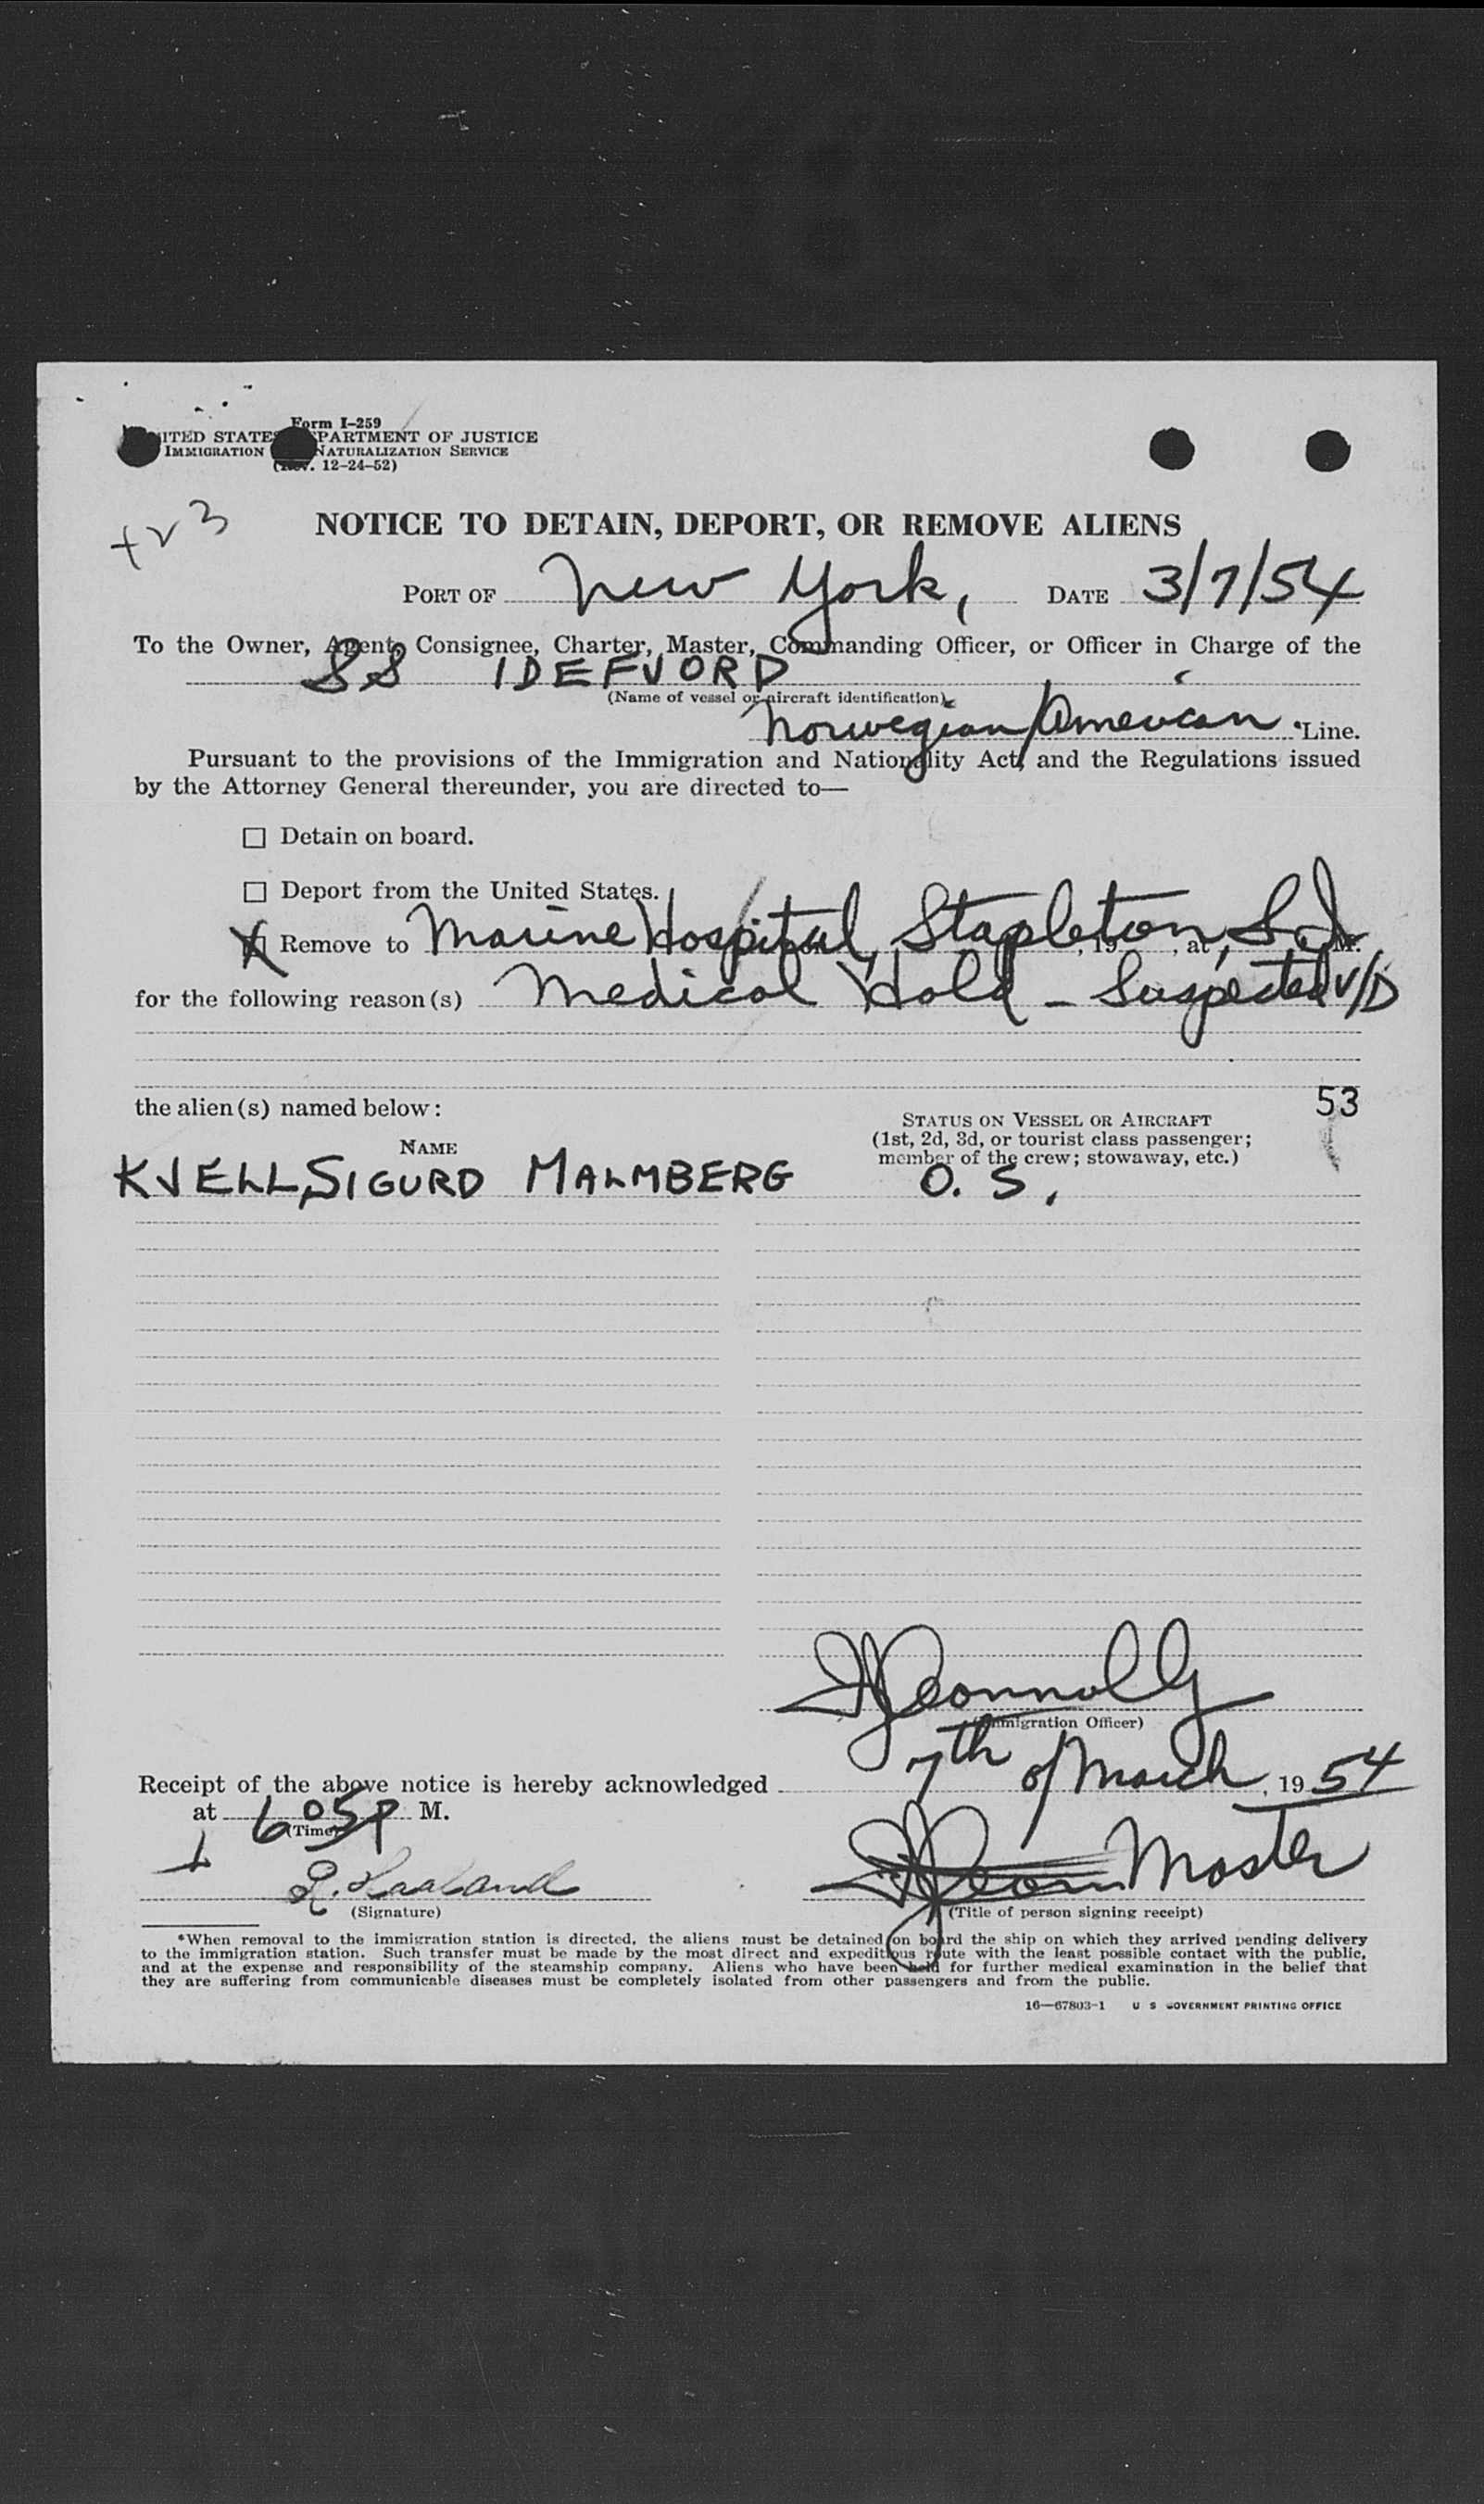 Form I-259
UNITED STATES DEPARTMENT OF JUSTICE
IMMIGRATION NATURALIZATION SERVICE
(Rev. 12-24-52)
NOTICE TO DETAIN, DEPORT, OR REMOVE ALIENS
PORT OF New York, DATE 3/7/54
To the Owner, Agent, Consignee, Charter, Master, Commanding Officer, or Officer in Charge of the
SS IDEFJORD
(Name of vessel or aircraft identification)
Norwegian American *Line.
Pursuant to the provisions of the Immigration and Nationality Act, and the Regulations issued
by the Attorney General thereunder, you are directed to—
☐ Detain on board.
☐ Deport from the United States.
☒ Remove to Marine Hospital, Stapleton, S.I. , 19 , at M.
for the following reason(s) Medical Hold - Suspected V/D
53
the alien(s) named below:
STATUS ON VESSEL OR AIRCRAFT
(1st, 2d, 3d, or tourist class passenger;
member of the crew; stowaway, etc.)
NAME
KJELL SIGURD MALMBERG O. S.
Connolly
(Immigration Officer)
Receipt of the above notice is hereby acknowledged 7th of March, 1954
at 6 05 P M.
(Time)
Master
(Signature)
(Title of person signing receipt)
*When removal to the immigration station is directed, the aliens must be detained on board the ship on which they arrived pending delivery
to the immigration station. Such transfer must be made by the most direct and expeditious route with the least possible contact with the public,
and at the expense and responsibility of the steamship company. Aliens who have been held for further medical examination in the belief that
they are suffering from communicable diseases must be completely isolated from other passengers and from the public.
16—67803-1 U S GOVERNMENT PRINTING OFFICE